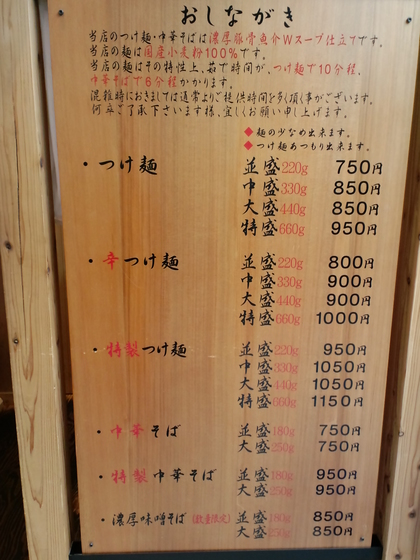 おしながき
当店のつけ麺・中華そばは濃厚豚骨魚介Wスープ仕立てです。
当店の麺は国産小麦粉100%です。
当店の麺はその特性上、茹で時間が、つけ麺で10分程、
中華そばで6分程かかります。
混雑時におきましては通常よりご提供時間を多く頂く事がございます。
何卒ご了承下さいます様、宜しくお願い申し上げます。
◆麺の少なめ出来ます。
◆つけ麺あつもり出来ます。
・つけ麺 並盛220g 750円
中盛330g 850円
大盛440g 850円
特盛660g 950円
・辛つけ麺 並盛220g 800円
中盛330g 900円
大盛440g 900円
特盛660g 1000円
・特製つけ麺 並盛220g 950円
中盛330g 1050円
大盛440g 1050円
特盛660g 1150円
・中華そば 並盛180g 750円
大盛250g 750円
・特製中華そば 並盛180g 950円
大盛250g 950円
・濃厚味噌そば(数量限定) 並盛180g 850円
大盛250g 850円